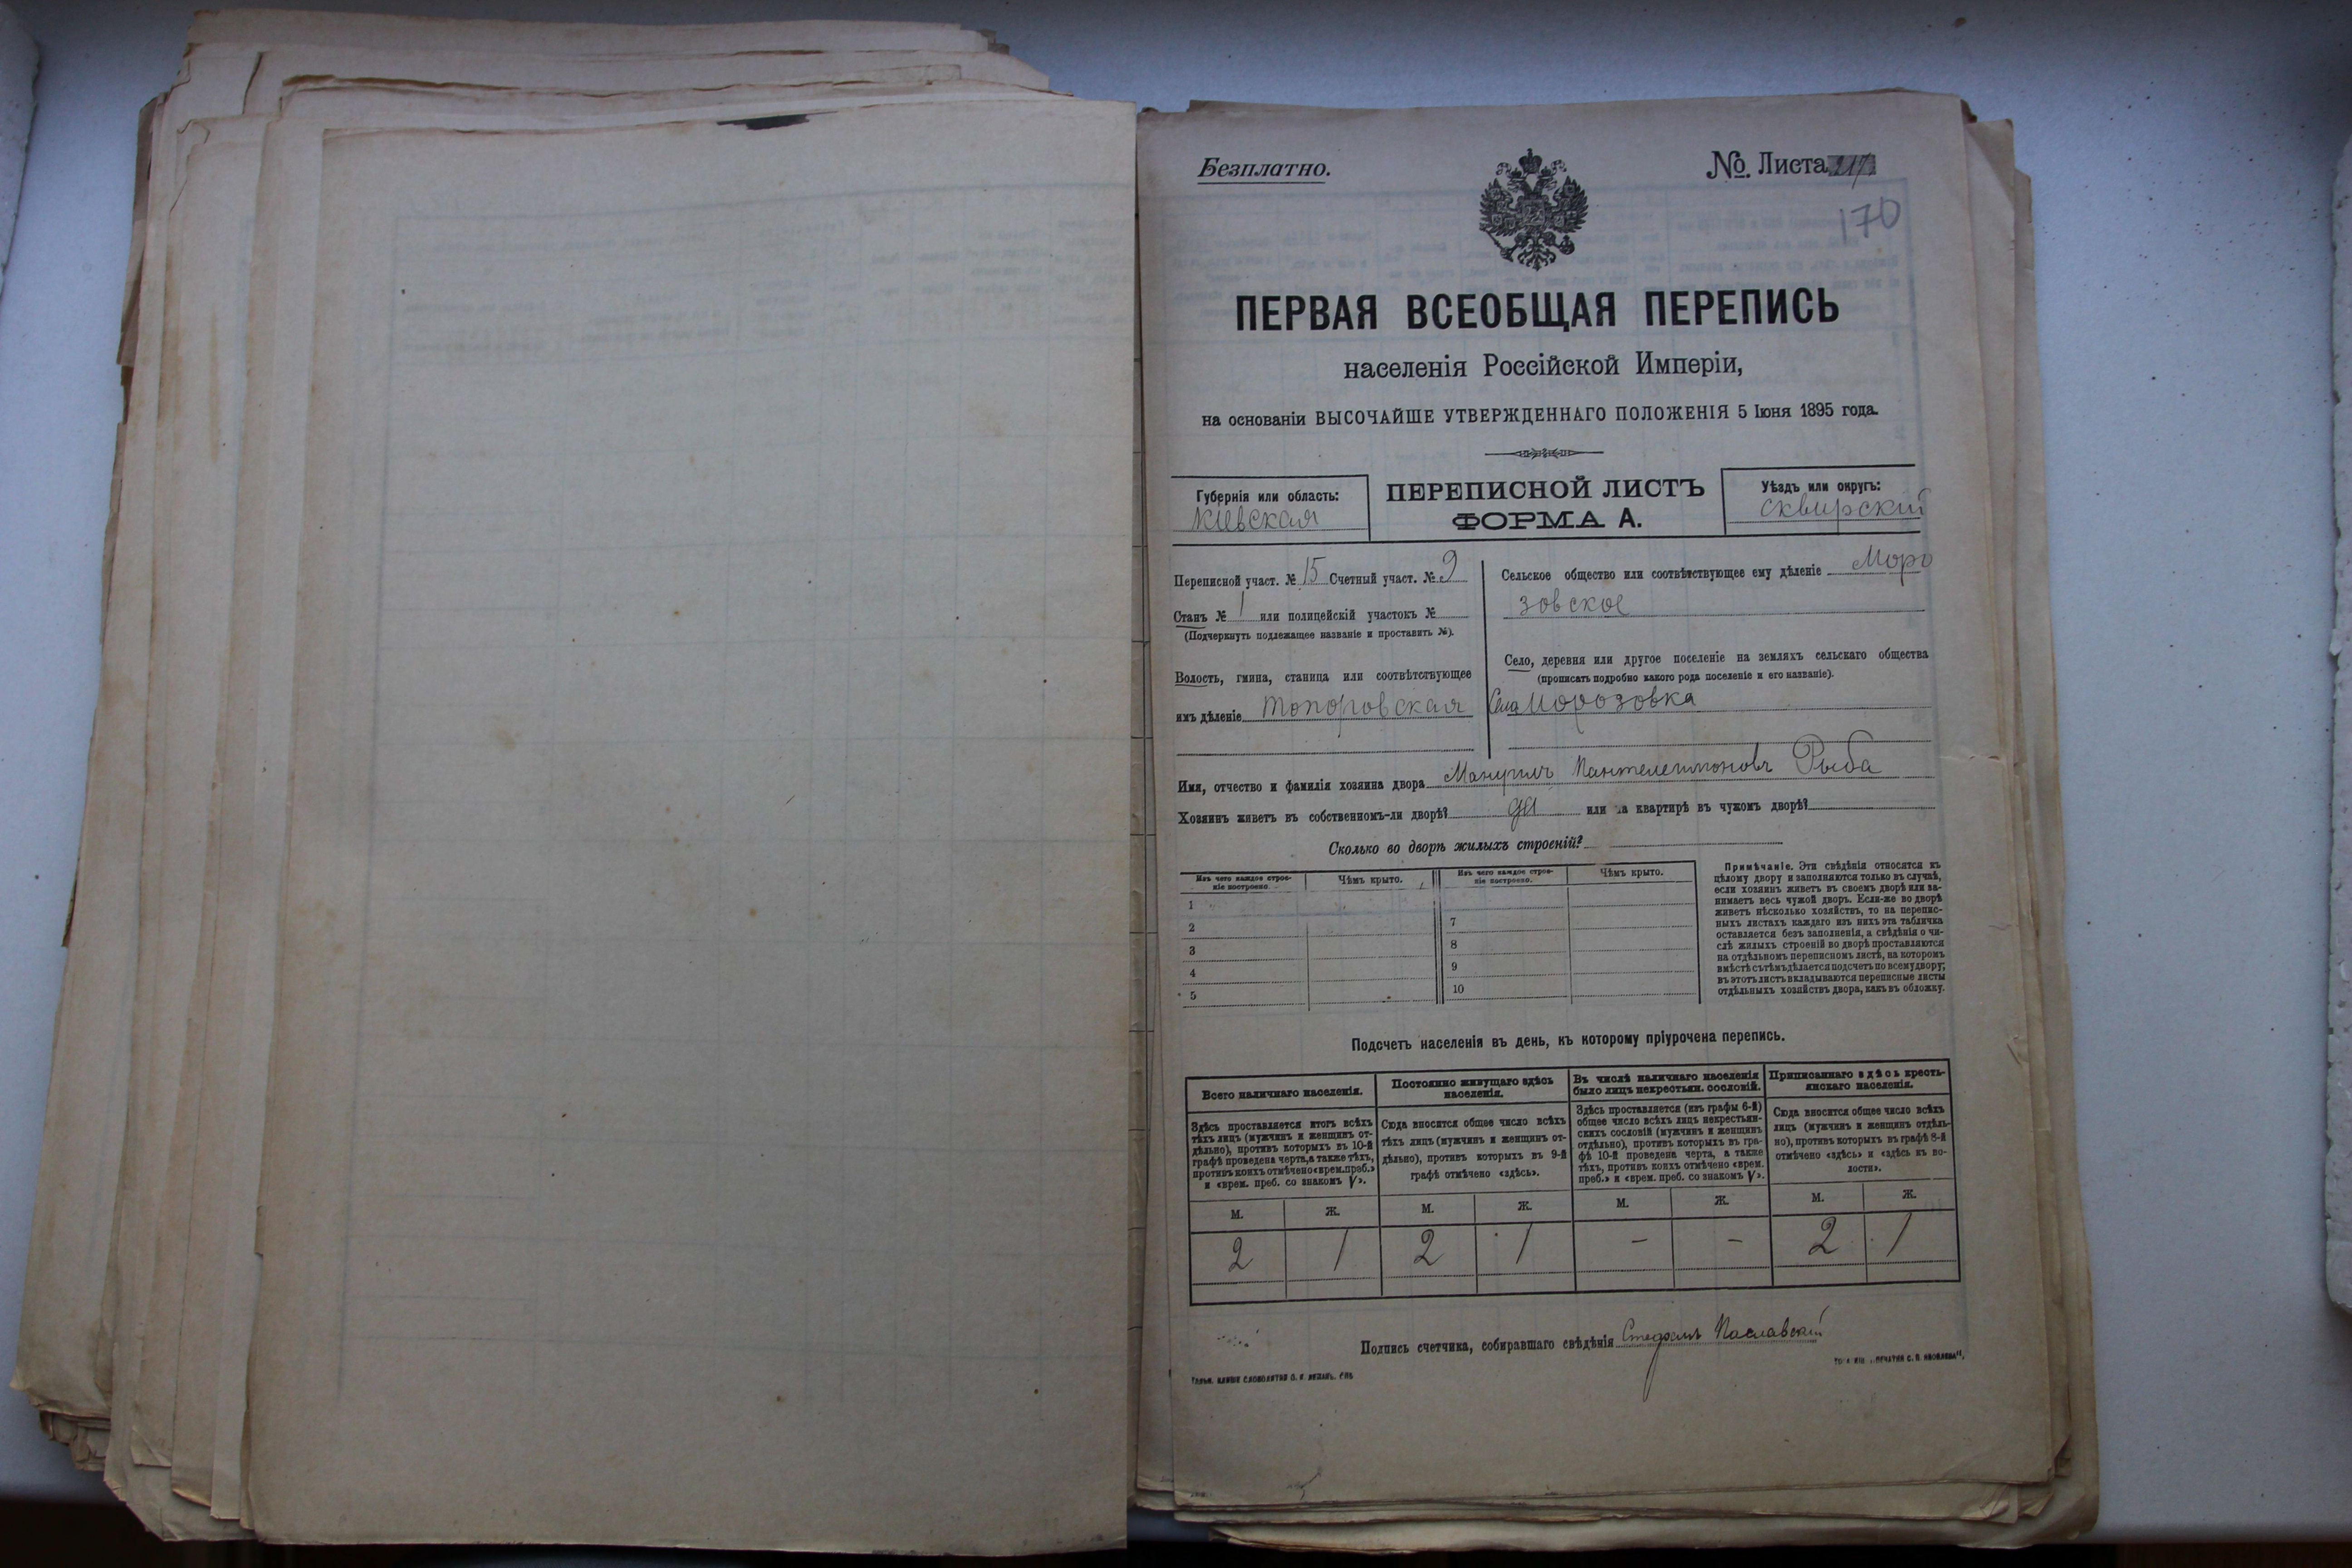 Безплатно.
№ Листа 217
170
ПЕРВАЯ ВСЕОБЩАЯ ПЕРЕПИСЬ
населенія Россійской Имперіи,
на основаніи ВЫСОЧАЙШЕ УТВЕРЖДЕННАГО ПОЛОЖЕНІЯ 5 Іюня 1895 года.
Губернія или область:
Кіевская
ПЕРЕПИСНОЙ ЛИСТЪ
ФОРМА А.
Уѣздъ или округъ:
Сквирскій
Переписной участ. № 15 Счетный участ. № 9
Станъ № 1 или полицейскій участокъ №
(Подчеркнуть подлежащее названіе и проставить №).
Волость, гмина, станица или соотвѣтствующее
имъ дѣленіе Топоровская
Сельское общество или соотвѣтствующее ему дѣленіе Моро
зовское
Село, деревня или другое поселеніе на земляхъ сельскаго общества
(прописать подробно какого рода поселеніе и его названіе).
Село Морозовка
Имя, отчество и фамилія хозяина двора Мануилъ Пантелеимоновъ Рыба
Хозяинъ живетъ въ собственномъ-ли дворѣ? да или на квартирѣ въ чужомъ дворѣ?
Сколько во дворѣ жилыхъ строеній?
Изъ чего каждое строе-
ніе построено.
Чѣмъ крыто.
Изъ чего каждое строе-
ніе построено.
Чѣмъ крыто.
1
2
3
4
5
7
8
9
10
Примѣчаніе. Эти свѣдѣнія относятся къ
цѣлому двору и заполняются только въ случаѣ,
если хозяинъ живетъ въ своемъ дворѣ или за-
нимаетъ весь чужой дворъ. Если-же во дворѣ
живетъ нѣсколько хозяйствъ, то на перепис-
ныхъ листахъ каждаго изъ нихъ эта табличка
оставляется безъ заполненія, а свѣдѣнія о чи-
слѣ жилыхъ строеній во дворѣ проставляются
на отдѣльномъ переписномъ листѣ, на которомъ
вмѣстѣ съ тѣмъ дѣлается подсчетъ по всему двору;
въ этотъ листъ вкладываются переписные листы
отдѣльныхъ хозяйствъ двора, какъ въ обложку.
Подсчетъ населенія въ день, къ которому пріурочена перепись.
Всего наличнаго населенія.
Здѣсь проставляется итогъ всѣхъ
тѣхъ лицъ (мужчинъ и женщинъ от-
дѣльно), противъ которыхъ въ 10-й
графѣ проведена черта, а также тѣхъ,
противъ коихъ отмѣчено «врем. преб.»
и «врем. преб. со знакомъ V».
Постоянно живущаго здѣсь
населенія.
Сюда вносится общее число всѣхъ
тѣхъ лицъ (мужчинъ и женщинъ от-
дѣльно), противъ которыхъ въ 9-й
графѣ отмѣчено «здѣсь».
Въ числѣ наличнаго населенія
было лицъ некрестьян. сословій.
Здѣсь проставляется (изъ графы 6-й)
общее число всѣхъ лицъ некрестьян-
скихъ сословій (мужчинъ и женщинъ
отдѣльно), противъ которыхъ въ гра-
фѣ 10-й проведена черта, а также
тѣхъ, противъ коихъ отмѣчено «врем.
преб.» и «врем. преб. со знакомъ V».
Приписаннаго здѣсь кресть-
янскаго населенія.
Сюда вносится общее число всѣхъ
лицъ (мужчинъ и женщинъ отдѣль-
но), противъ которыхъ въ графѣ 8-й
отмѣчено «здѣсь» и «здѣсь въ во-
лости».
М. Ж. М. Ж. М. Ж. М. Ж.
2 1 2 1 - - 2 1
Подпись счетчика, собиравшаго свѣдѣнія Стефанъ Паславскій